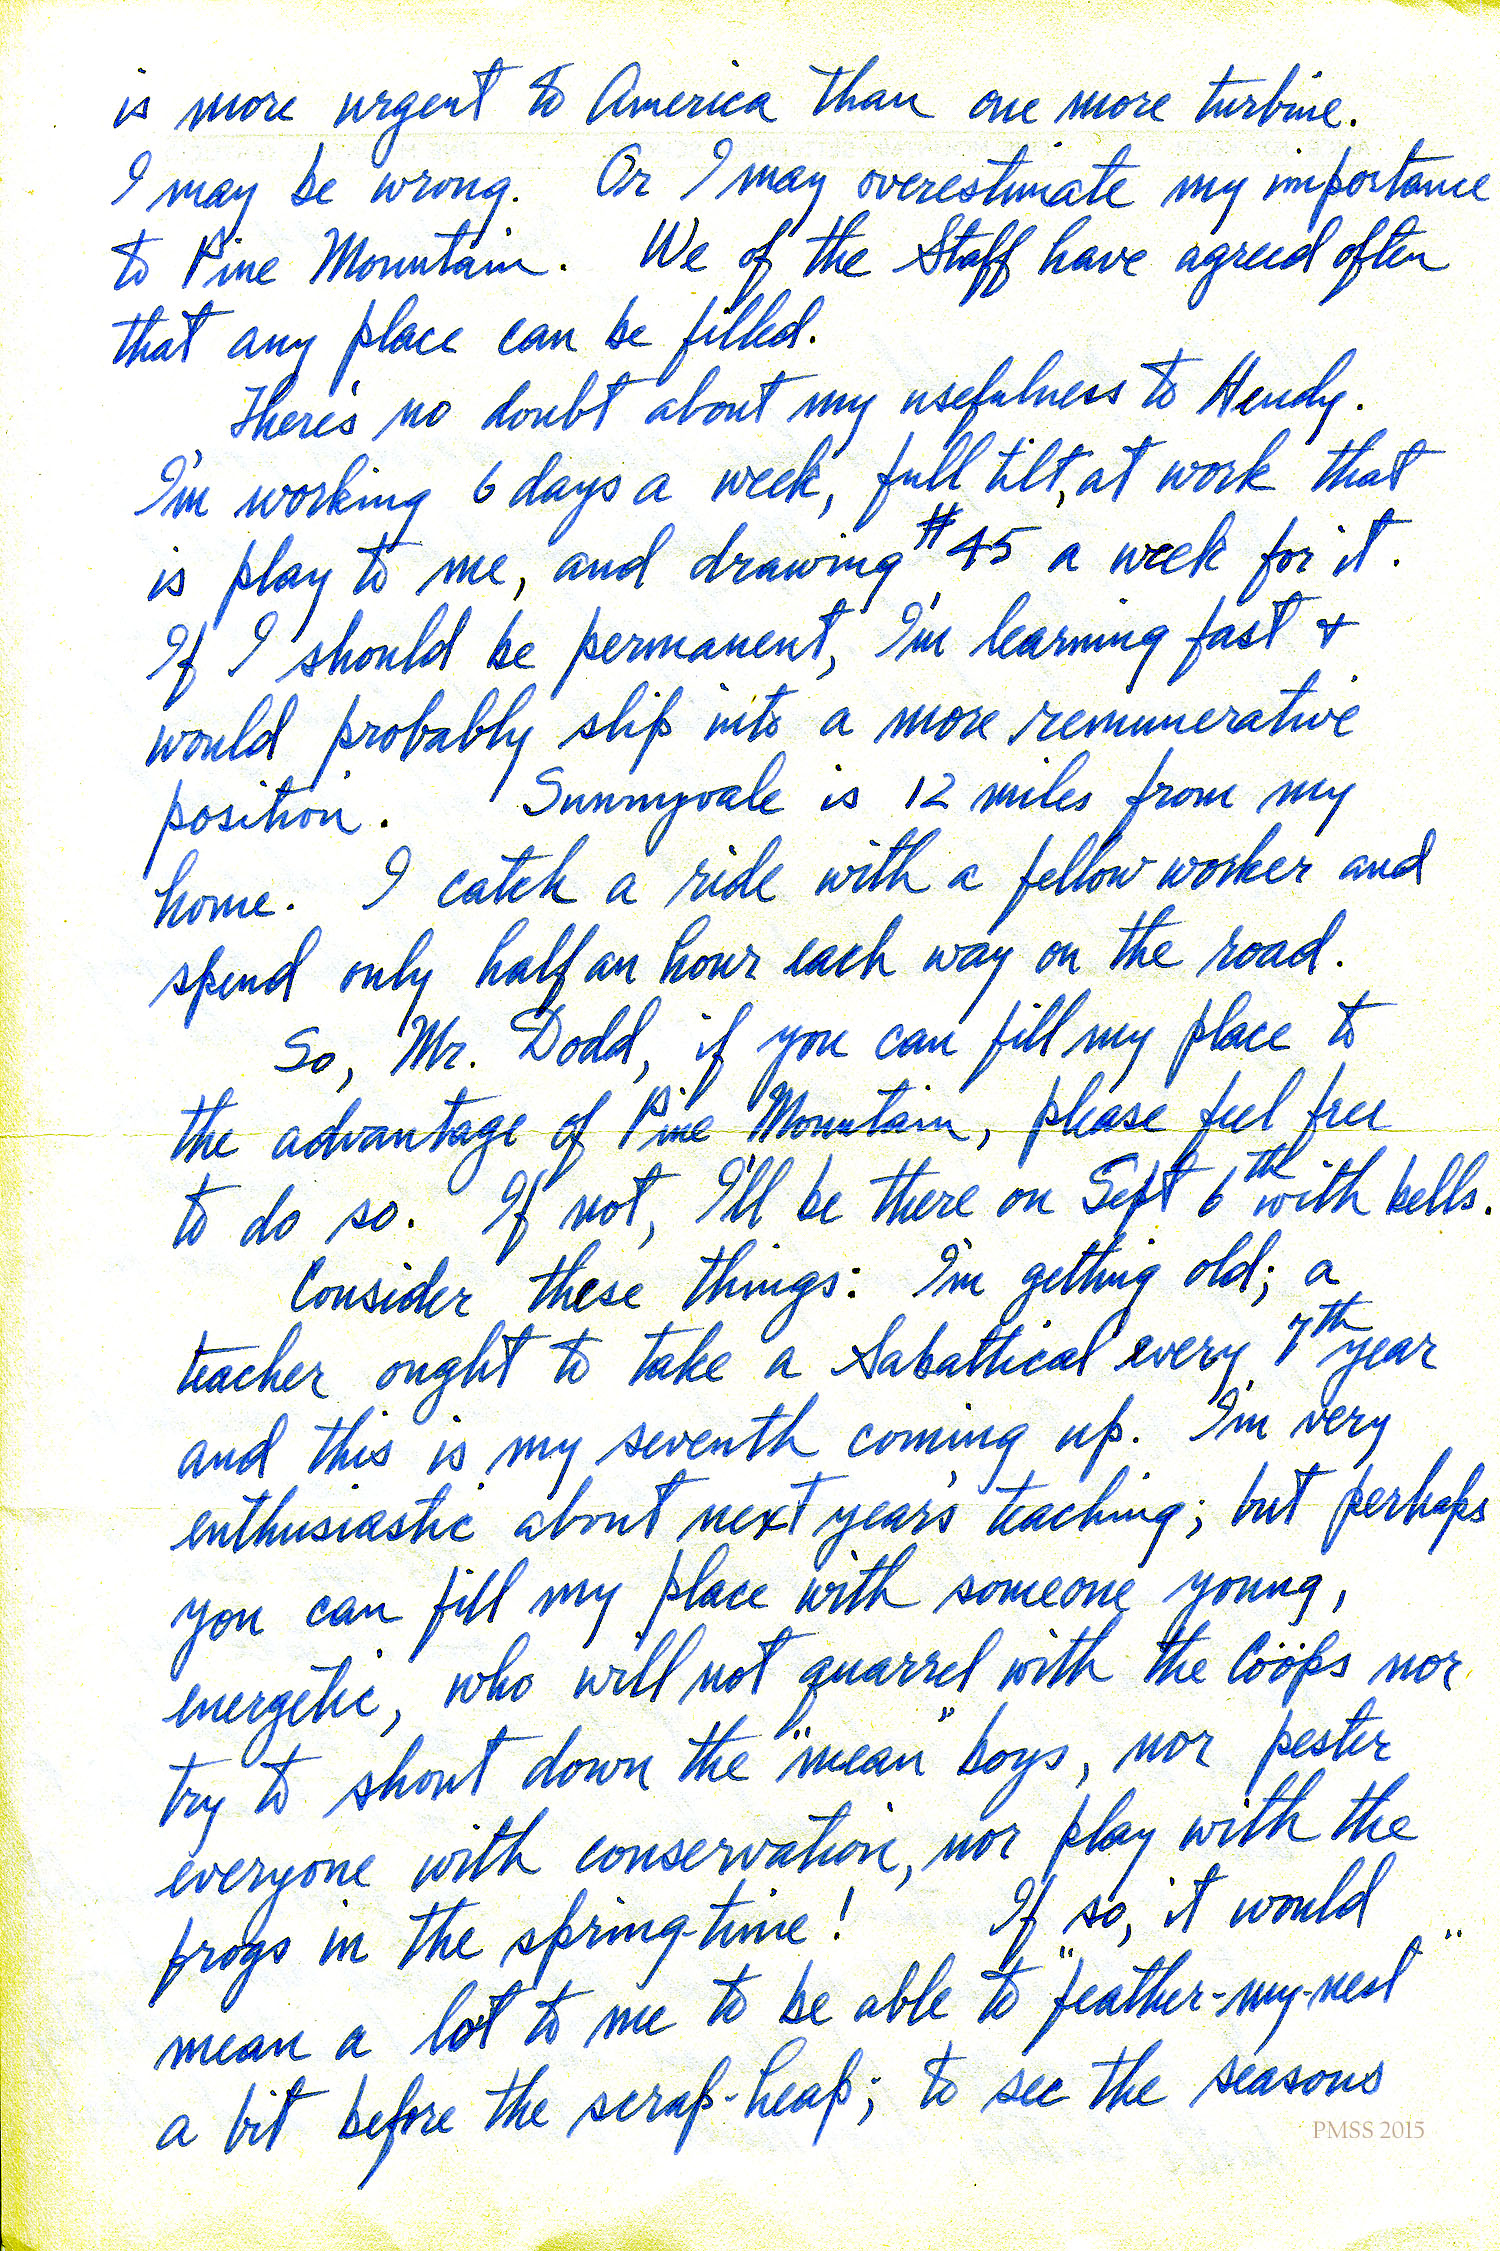 is more urgent to America than one more turbine.
I may be wrong. Or I may overestimate my importance
to Pine Mountain. We of the Staff have agreed often
that any place can be filled.
There's no doubt about my usefulness to Hendy.
I'm working 6 days a week, full tilt, at work that
is play to me, and drawing $45 a week for it.
If I should be permanent, I'm learning fast &
would probably slip into a more remunerative
position. Sunnyvale is 12 miles from my
home. I catch a ride with a fellow worker and
spend only half an hour each way on the road.
So, Mr. Dodd, if you can fill my place to
the advantage of Pine Mountain, please feel free
to do so. If not, I'll be there on Sept 6th with bells.
Consider these things: I'm getting old; a
teacher ought to take a Sabattical every 7th year
and this is my seventh coming up. I'm very
enthusiastic about next year's teaching; but perhaps
you can fill my place with someone young,
energetic, who will not quarrel with the Cööps nor
try to shout down the "mean" boys, nor pester
everyone with conservation, nor play with the
frogs in the spring-time! If so, it would
mean a lot to me to be able to "feather-my-nest"
a bit before the scrap-heap; to see the seasons
PMSS 2015